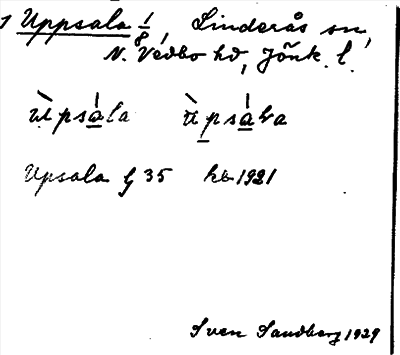 1 Uppsala 1/8, Linderås sn,
N. Vedbo hd, Jönk. l.
ùpsála ùpsáɬa
Upsala lj 35 hb 1921
Sven Sandberg 1929